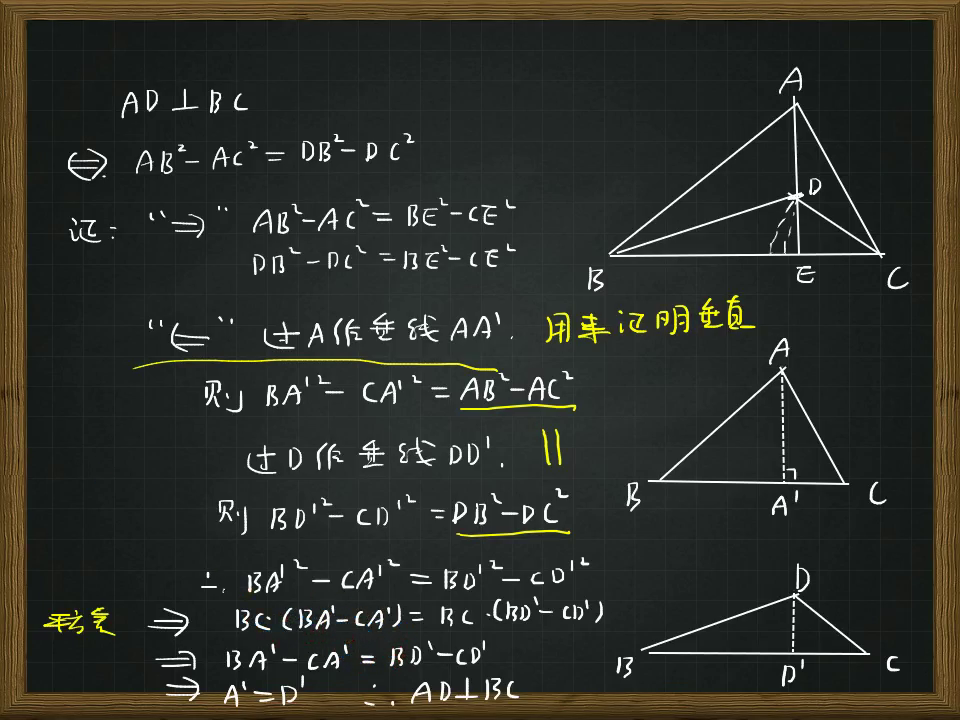 AD⊥BC
⇔ AB²-AC²=DB²-DC²
证: "⇒" AB²-AC²=BE²-CE²
DB²-DC²=BE²-CE²
"⇐" 过A作垂线AA'. 用来证明垂直
则 BA'²-CA'²=AB²-AC²
过D作垂线DD'. ||
则 BD'²-CD'²=DB²-DC²
∴ BA'²-CA'²=BD'²-CD'²
⇒ BC·(BA'-CA')=BC·(BD'-CD')
⇒ BA'-CA'=BD'-CD'
⇒ A'=D' ∴ AD⊥BC
A
D
B
E
C
A
B
A'
C
D
B
D'
C